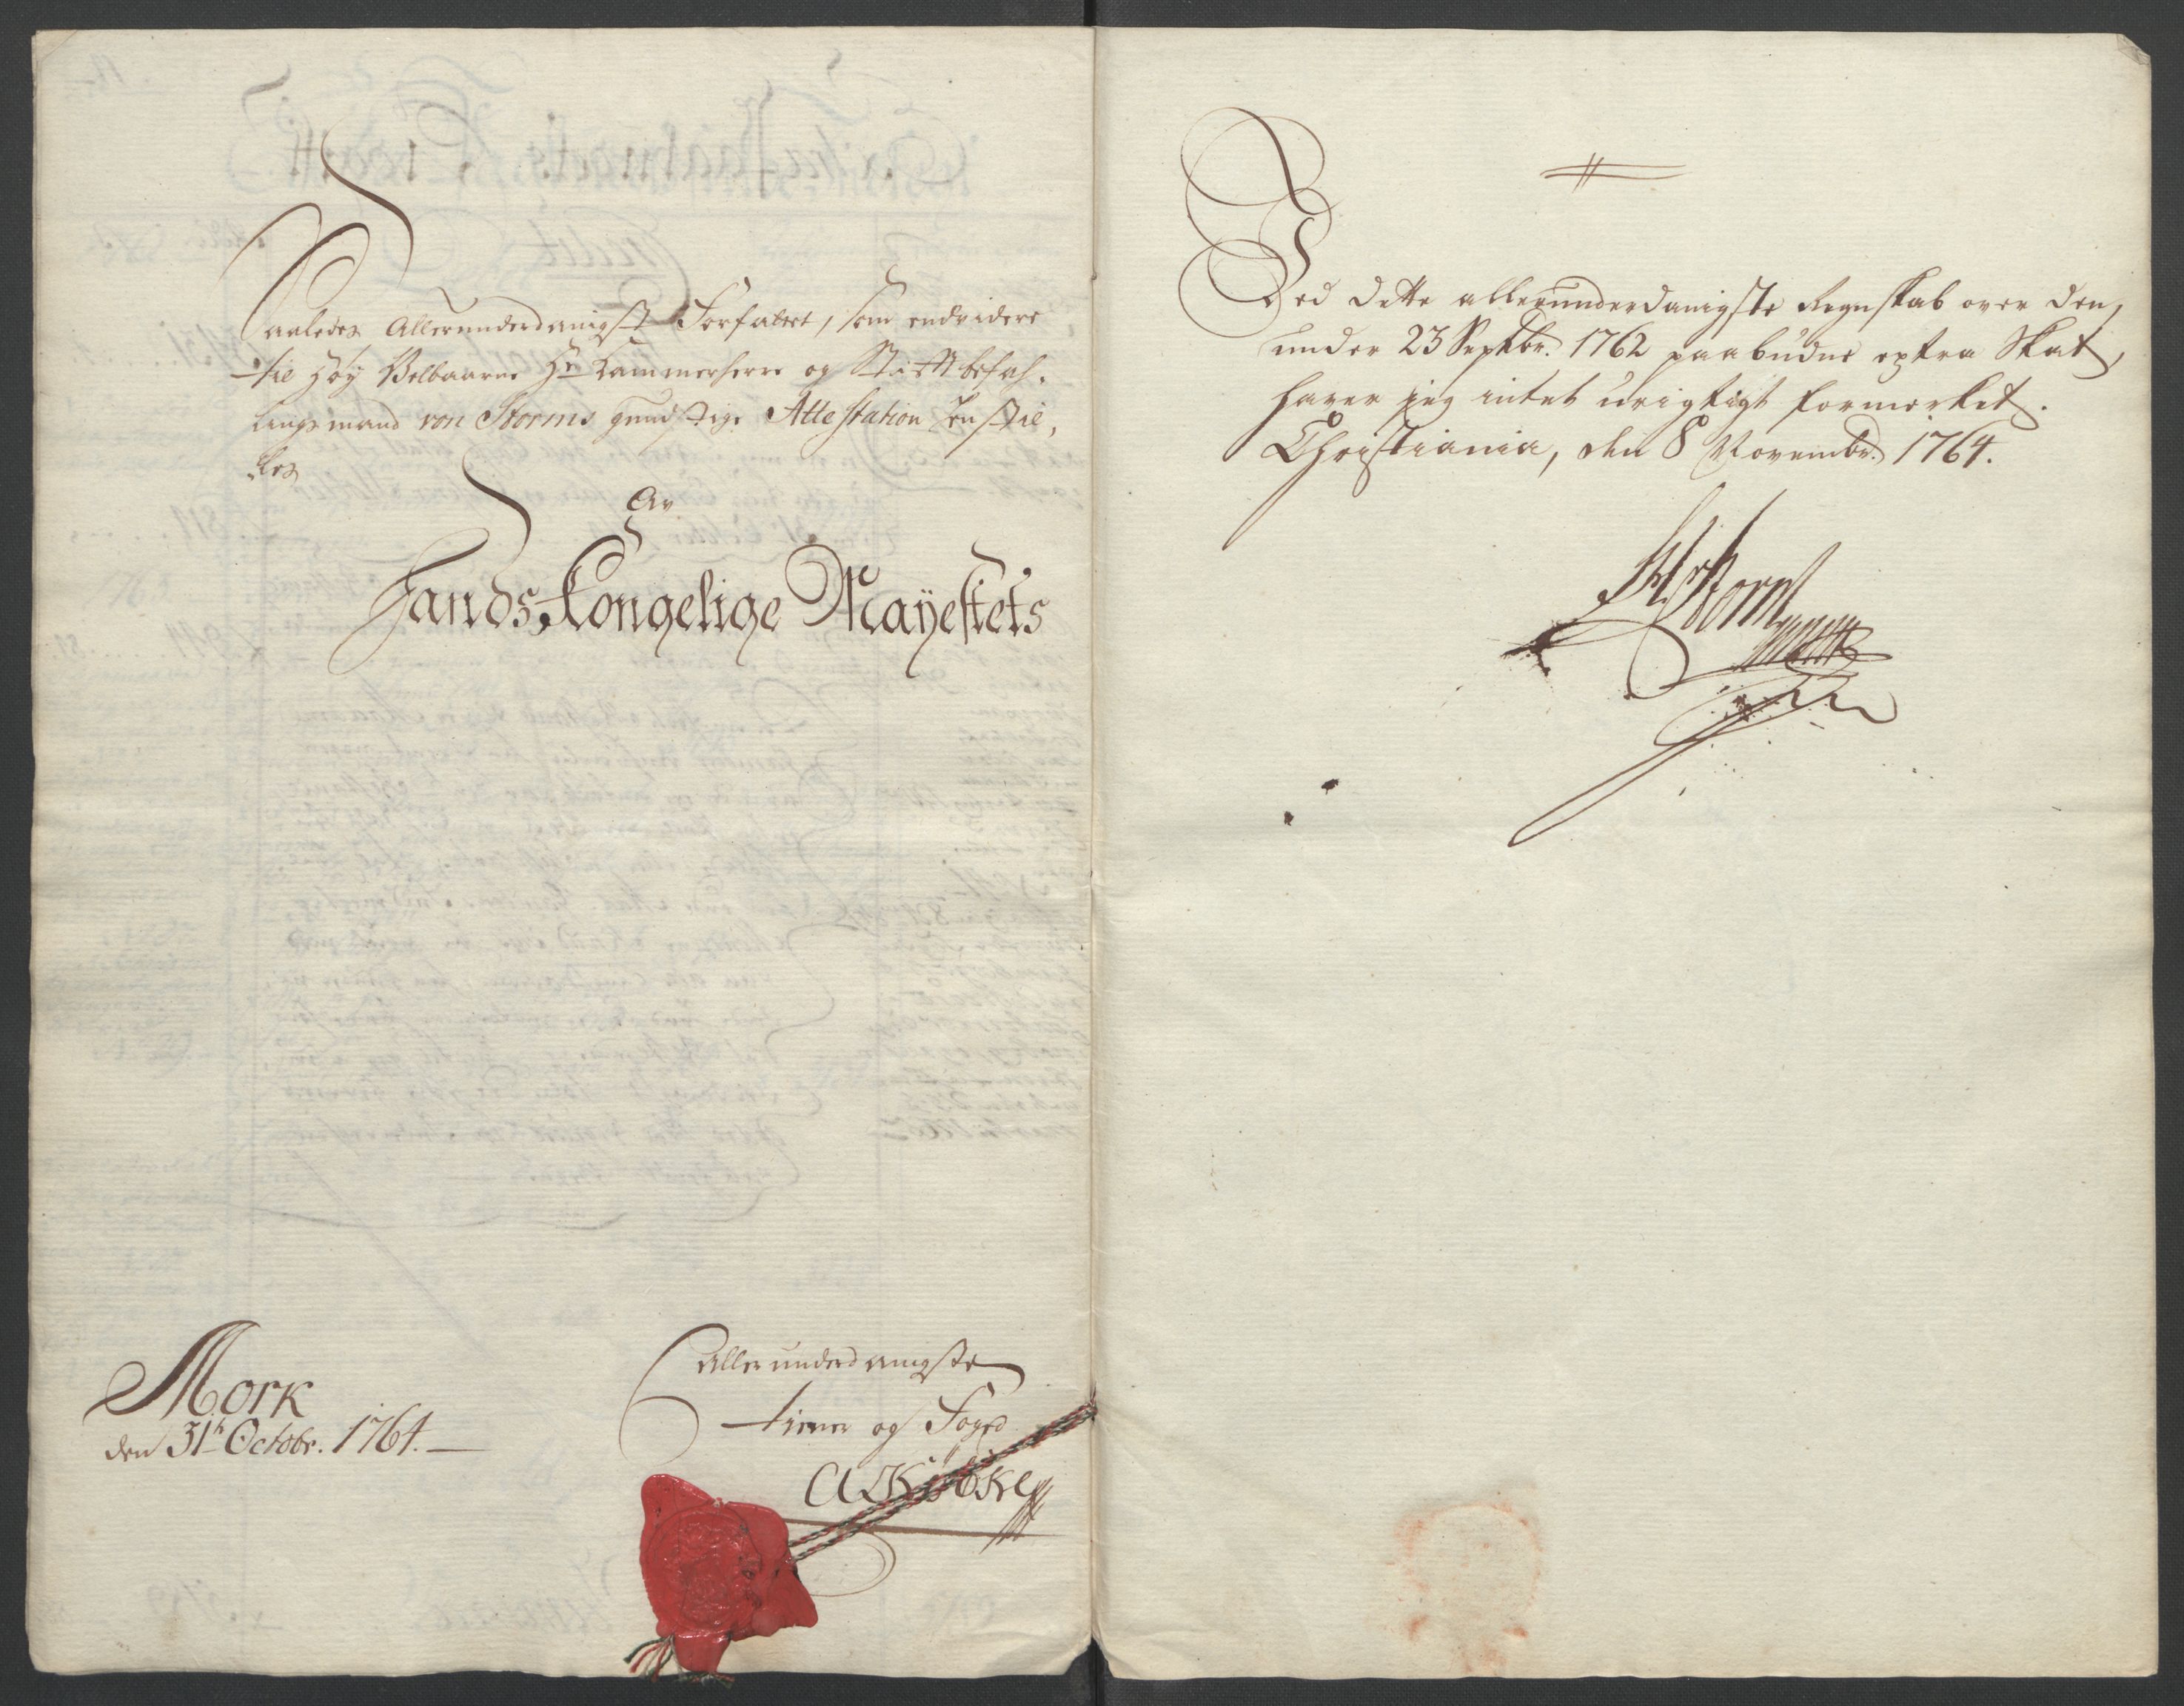 Saaledes Allerunderdanigst Forfattet, som endvidere
til Høy Velbaarne Hr Kammerherre og Stiftbefah-
lingsmand von Storms gundstige Attestation henstil-
les
Av
Hands Kongelige Mayestets
Mork
den 31te Octobr. 1764.
Allerunderdanigste
tiener og Foged
Ved dette allerunderdanigste Regnskab over den,
under 23 Septbr. 1762 paabudne extra Skat,
haver jeg intet urigtigt formerket.
Christiania, den 8 Novembr. 1764.
Storm